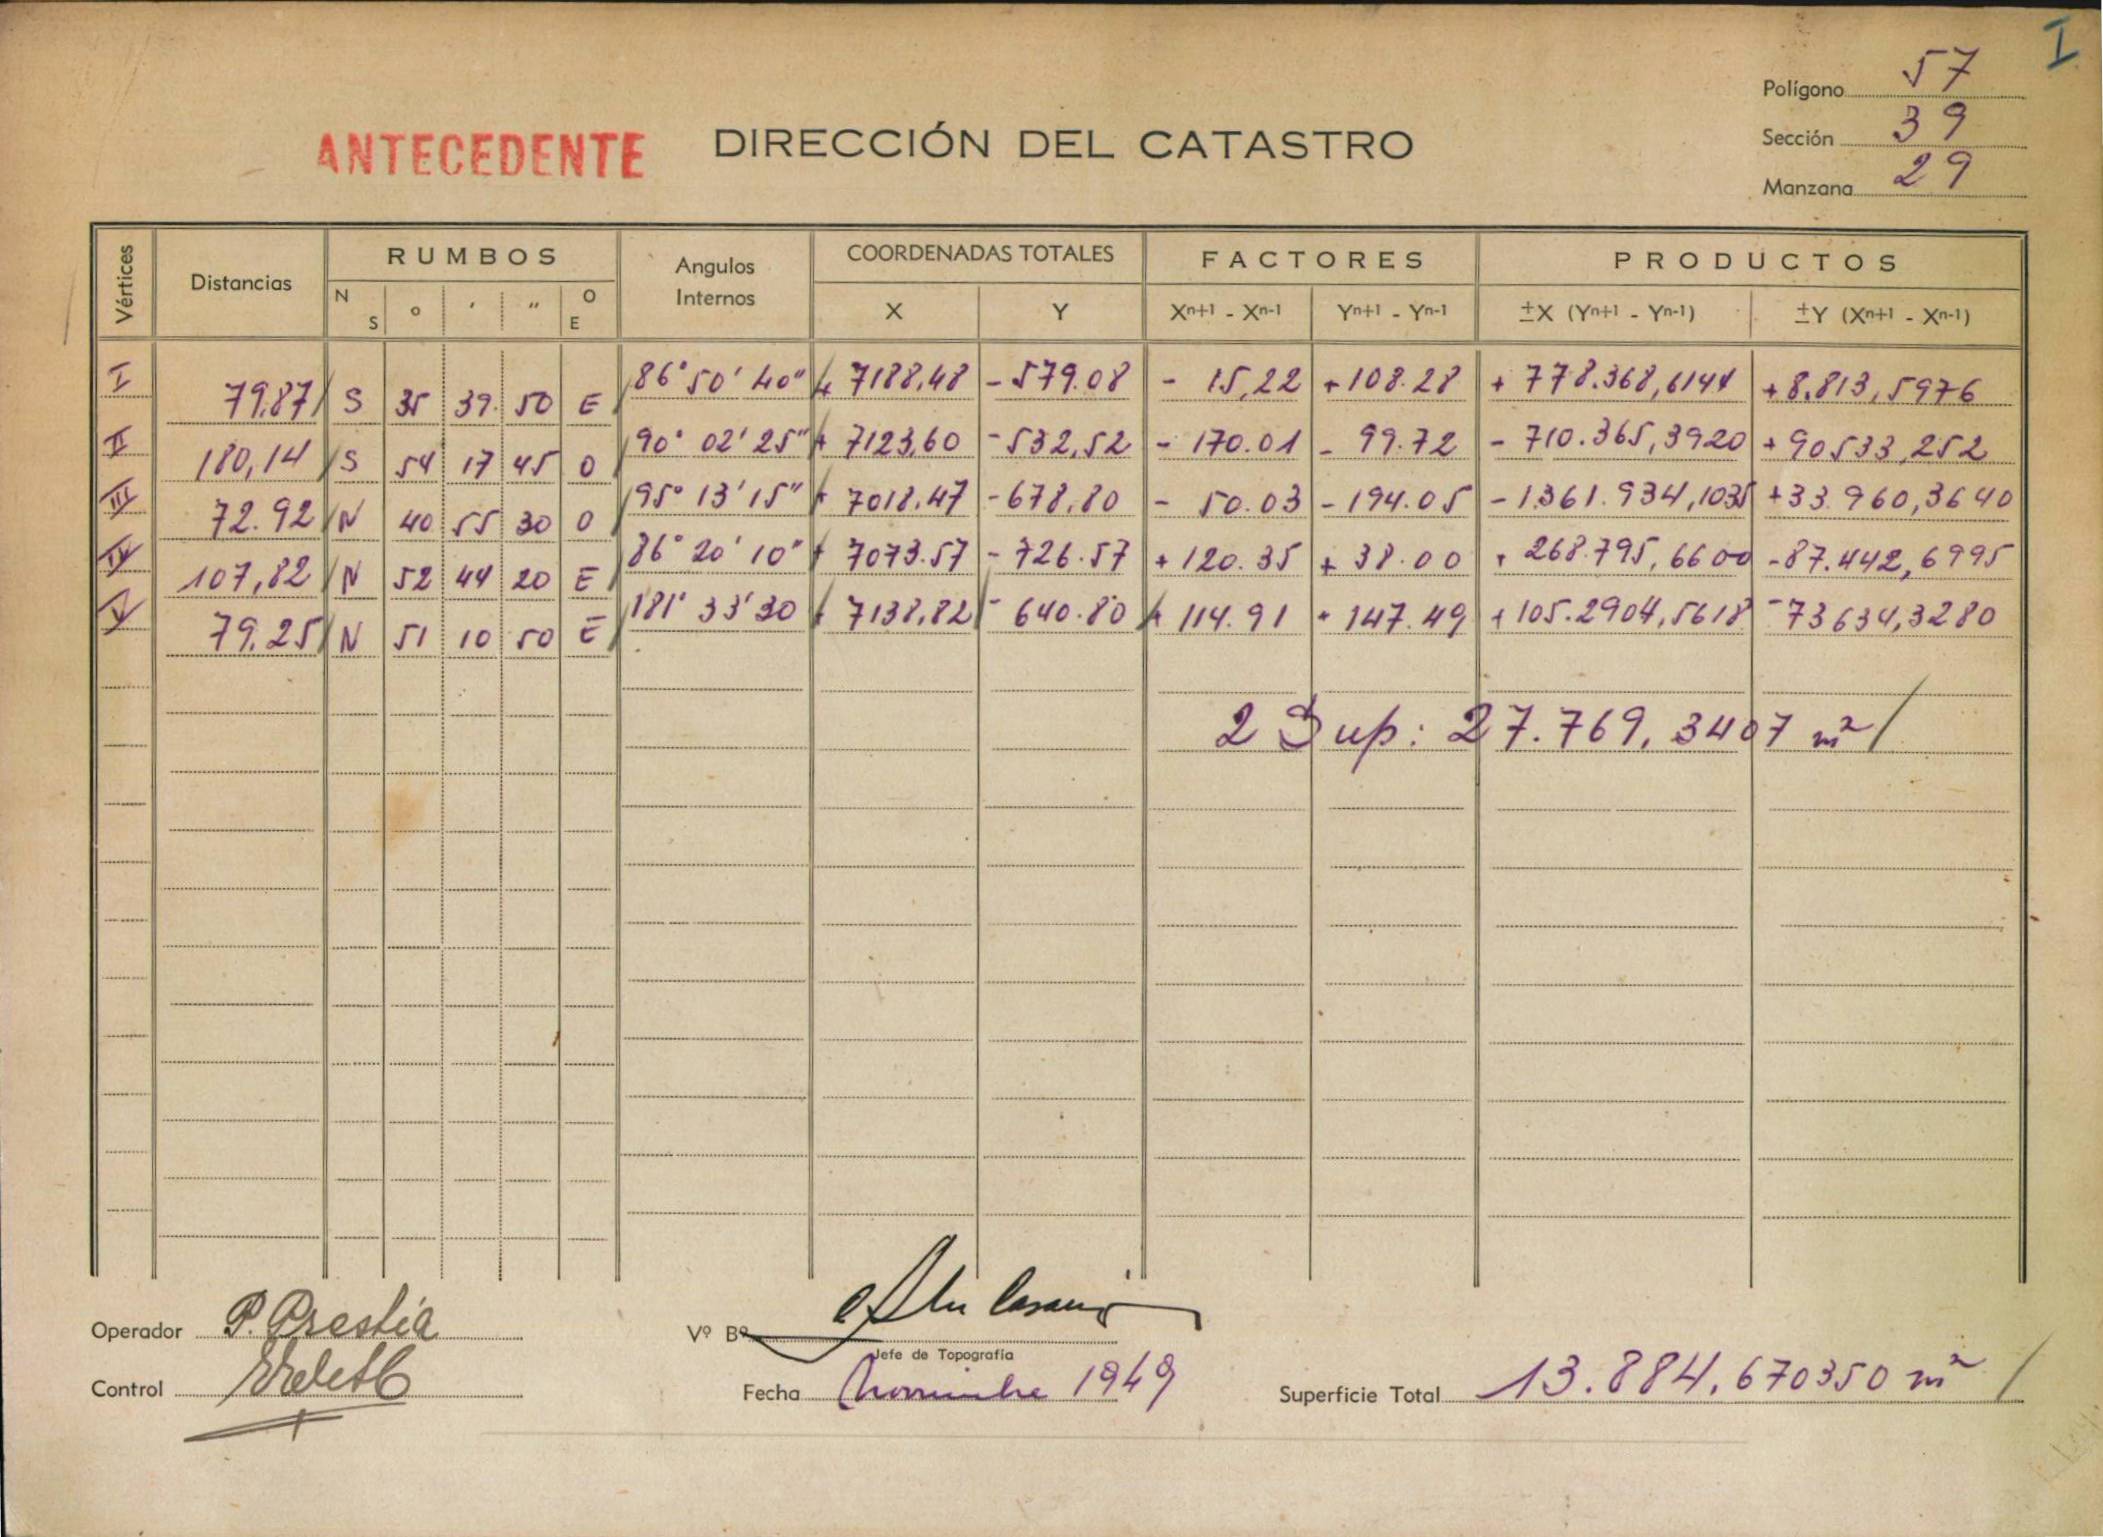 I
Polígono 57
Sección 39
Manzana 29
ANTECEDENTE DIRECCIÓN DEL CATASTRO
Vértices Distancias RUMBOS Angulos Internos COORDENADAS TOTALES FACTORES PRODUCTOS
N S ° ' " O E X Y Xn+1 - Xn-1 Yn+1 - Yn-1 ±X (Yn+1 - Yn-1) ±Y (Xn+1 - Xn-1)
I 79,87 S 35 39 50 E 86° 50' 40" + 7188,48 - 579.08 - 15,22 + 108.28 + 778.368,6144 + 8.813,5976
II 180,14 S 54 17 45 O 90° 02' 25" + 7123,60 - 532,52 - 170.01 - 99.72 - 710.365,3920 + 90533,252
III 72.92 N 40 55 30 O 95° 13' 15" + 7018,47 - 678,80 - 50.03 - 194.05 - 1361.934,1035 + 33.960,3640
IV 107,82 N 52 44 20 E 86° 20' 10" + 7073.57 - 726.57 + 120.35 + 38.00 + 268.795,6600 - 87.442,6995
V 79,25 N 51 10 50 E 181° 33' 30 + 7138,82 - 640.80 + 114.91 + 147.49 + 105.2904,5618 - 73634,3280
2 Sup: 27.769,3407 m²
Operador P. Prestia
Vº Bº
Jefe de Topografía
Control
Fecha Noviembre 1949
Superficie Total 13.884,670350 m²